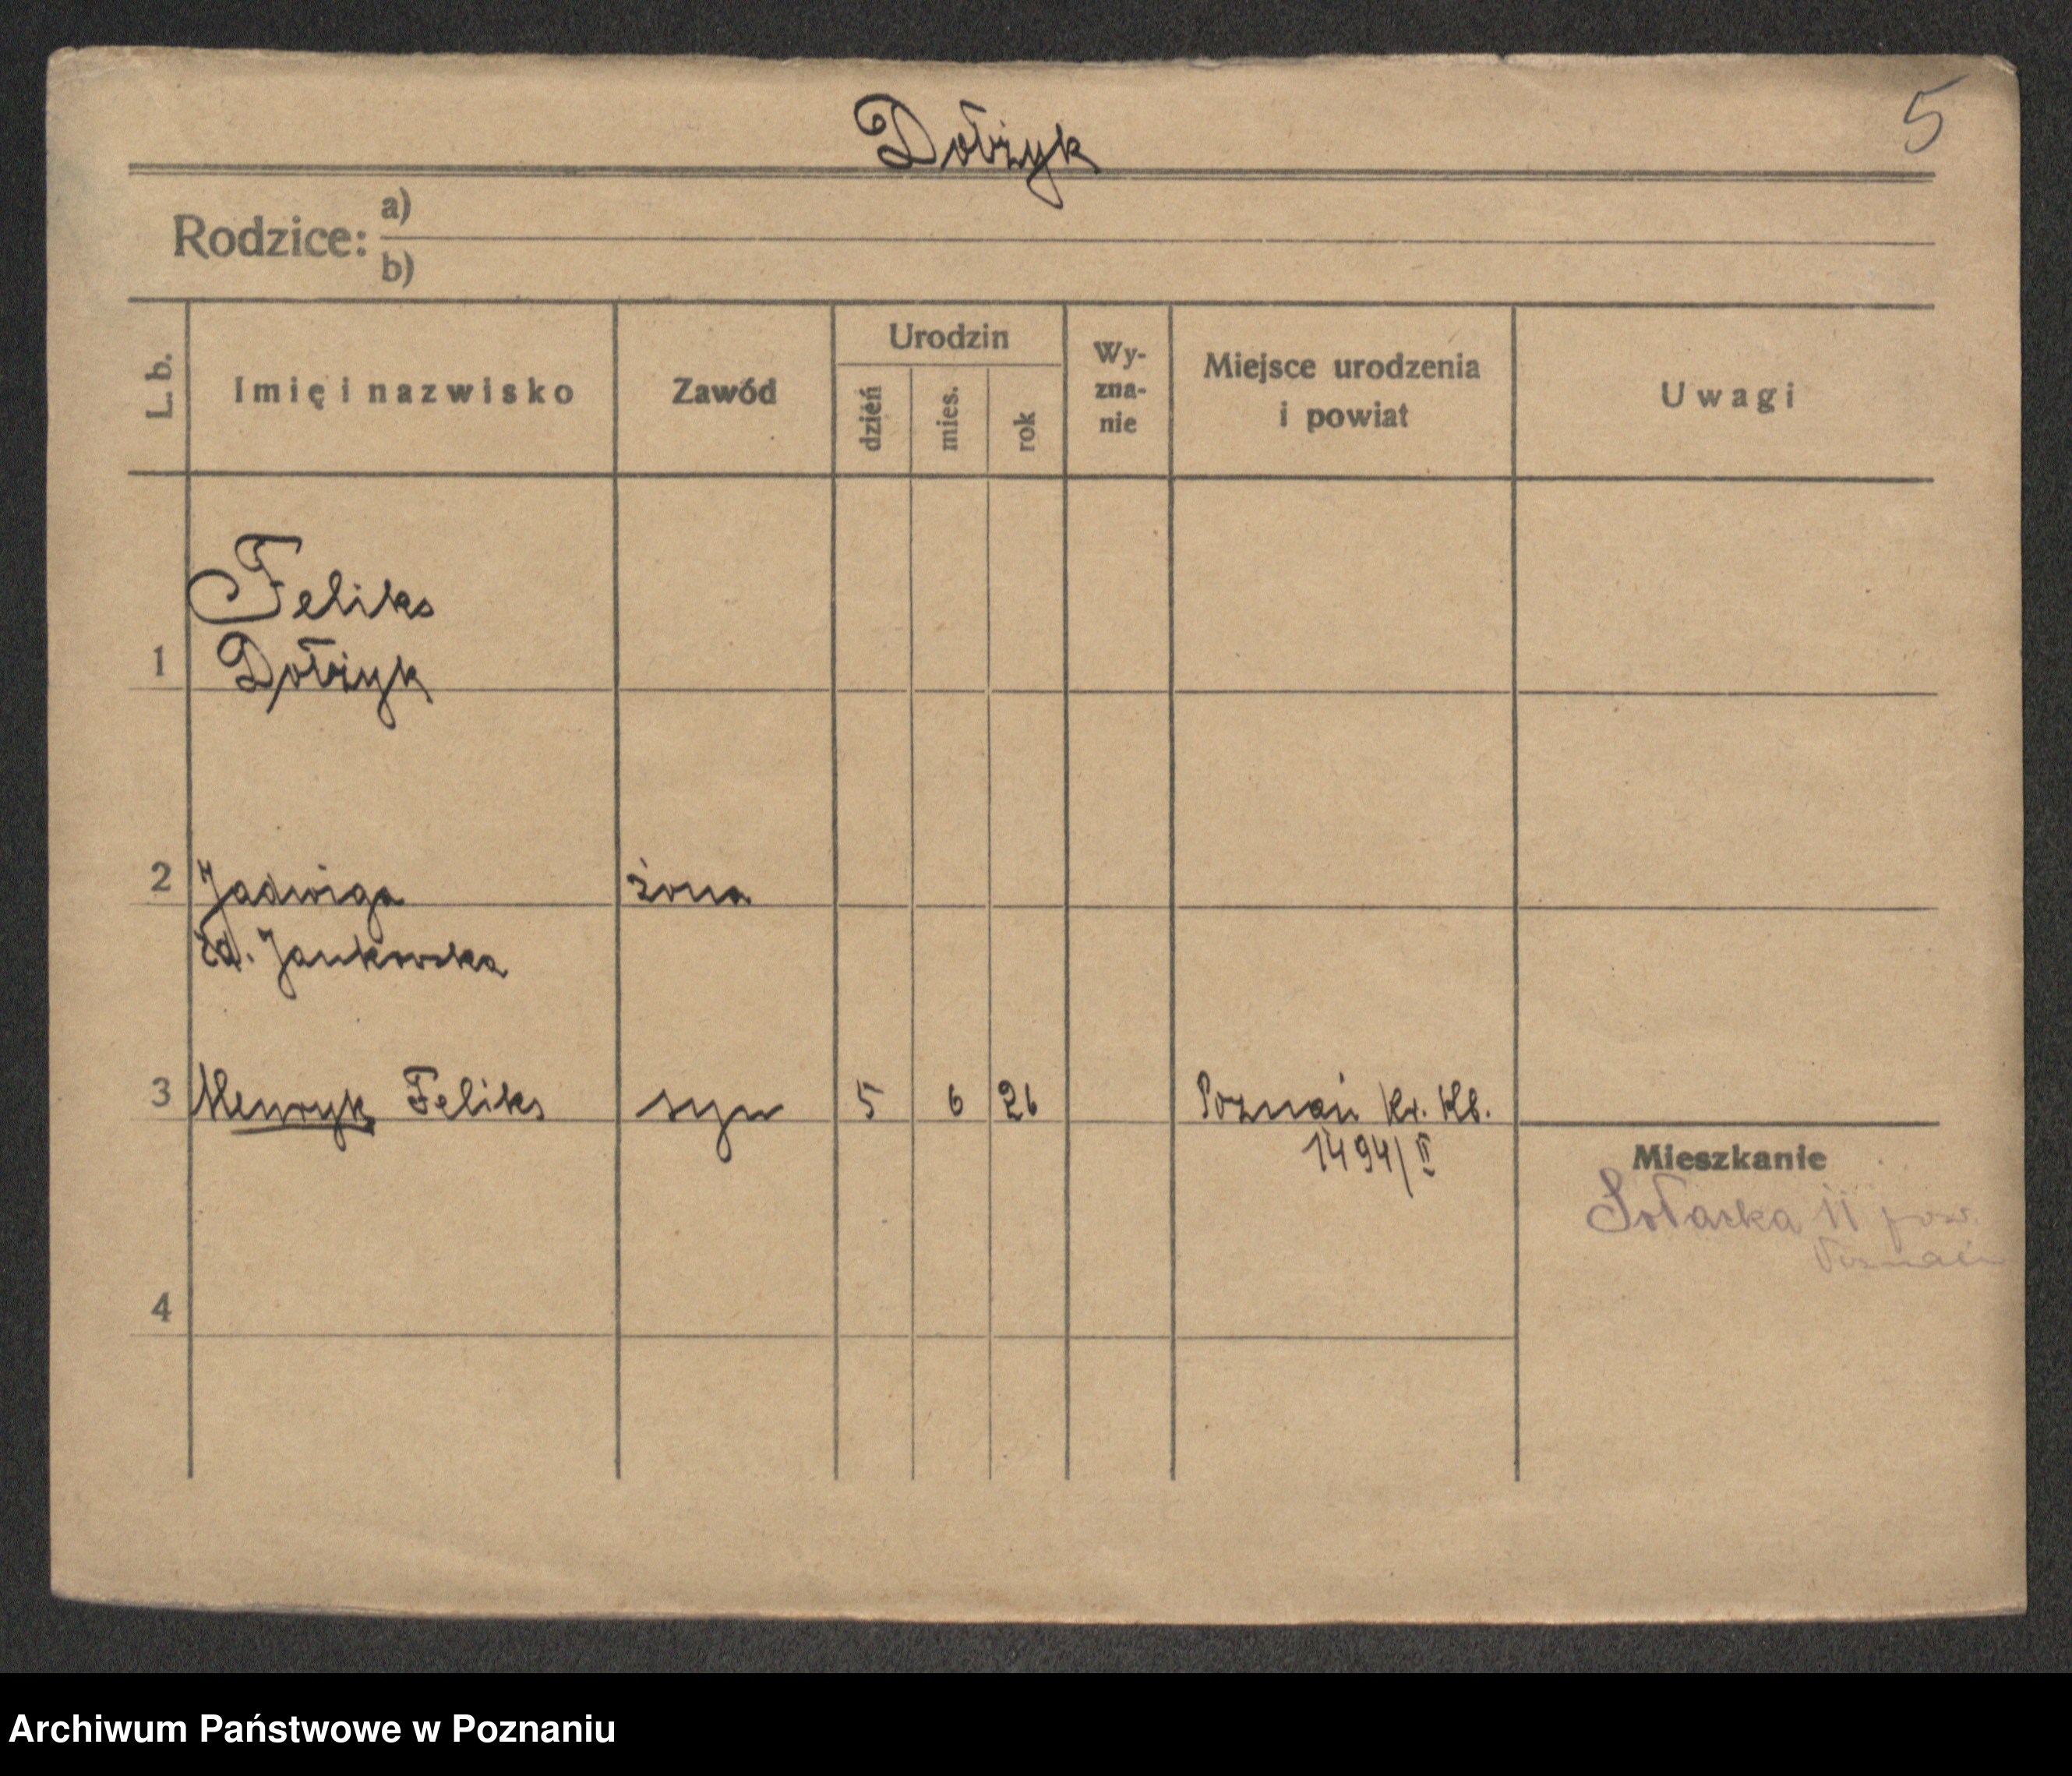 5
Dołżyk
Rodzice: a)
b)
L. b. Imię i nazwisko Zawód Urodzin dzień mies. rok Wy-zna-nie Miejsce urodzenia i powiat Uwagi
Feliks
1 Dołżyk
2 Jadwiga żona
Jankowska
3 Henryk Feliks syn 5 6 26 Poznań Kr. Kb.
1494/II
Mieszkanie
Sołacka 11 pow.
Poznań
4
Archiwum Państwowe w Poznaniu